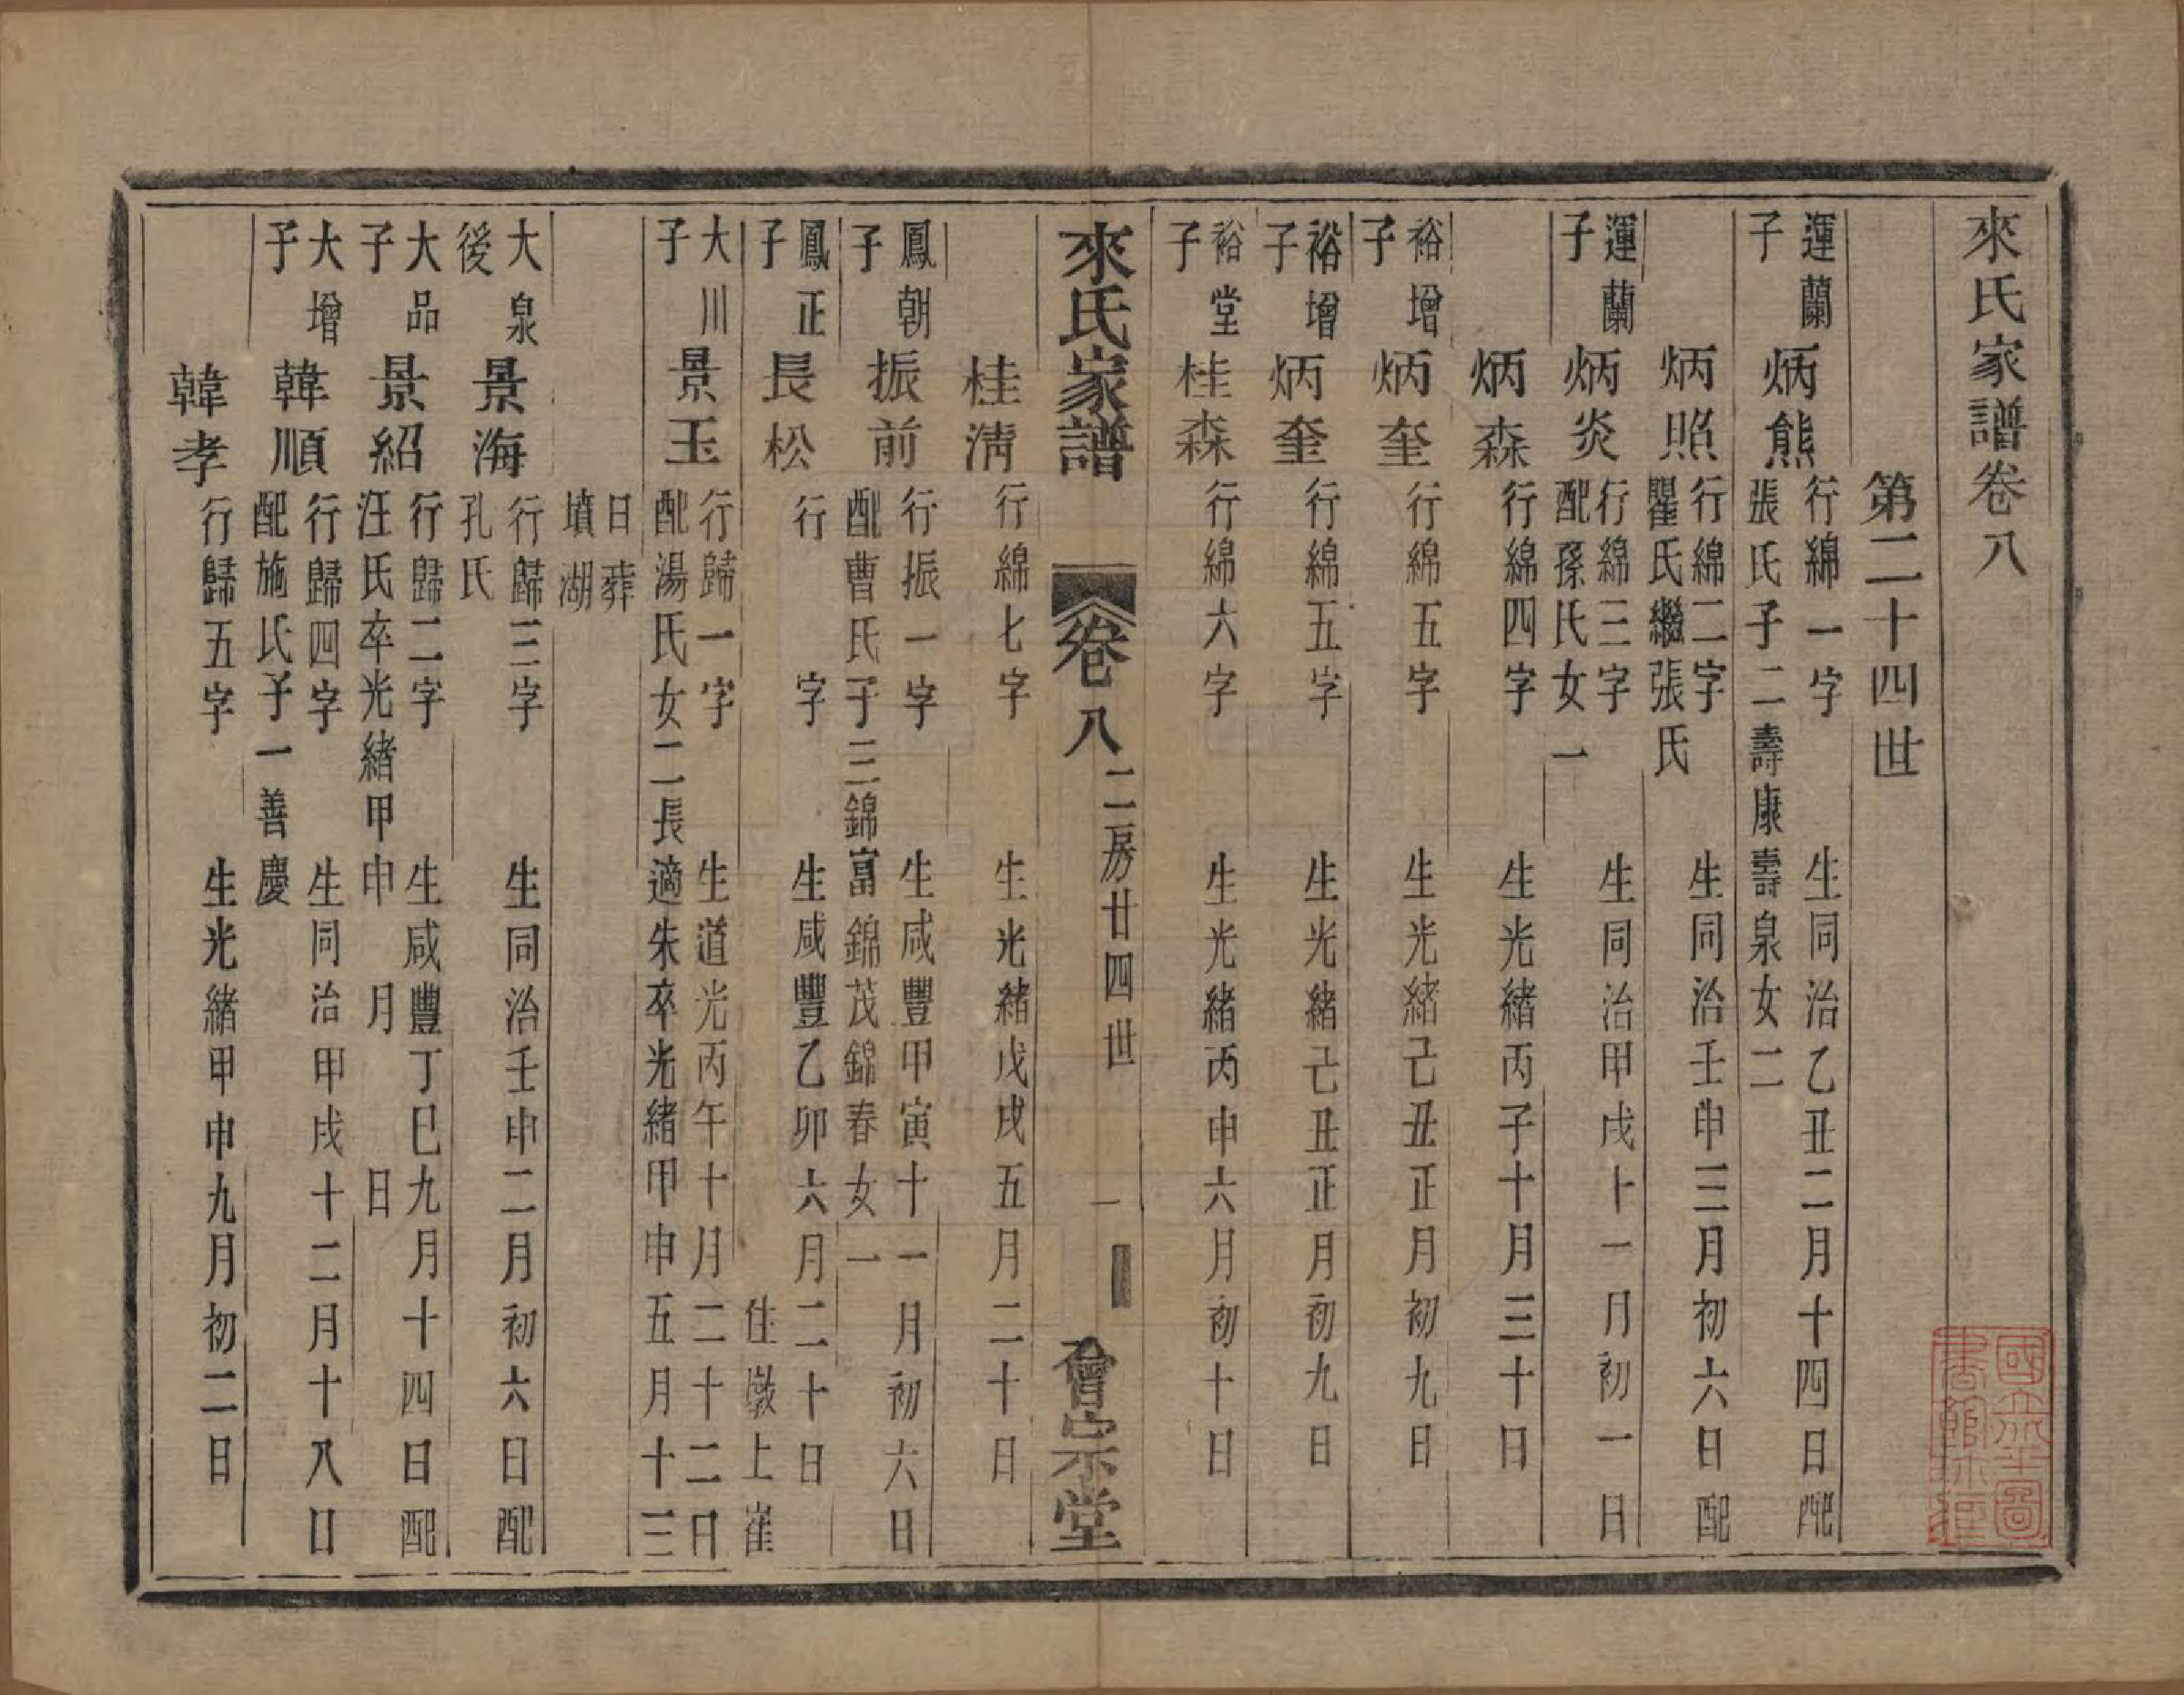 來氏家譜卷八
第二十四世
運蘭子
炳熊
行綿一字 生同治乙丑二月十四日配
張氏子二壽康壽泉女二
炳照
行綿二字 生同治壬申三月初六日配
瞿氏繼張氏
運蘭子
炳炎
行綿三字 生同治甲戌十一月初一日
配孫氏女一
炳森
行綿四字 生光緒丙子十月三十日
裕增子
炳奎
行綿五字 生光緒己丑正月初九日
裕增子
炳奎
行綿五字 生光緒己丑正月初九日
裕堂子
桂森
行綿六字 生光緒丙申六月初十日
來氏家譜 卷八 二房廿四世 一 會宗堂
桂淸
行綿七字 生光緒戊戌五月二十日
鳳朝子
振前
行振一字 生咸豐甲寅十一月初六日
配曹氏子三錦富錦茂錦春女一
鳳正子
長松
行 字 生咸豐乙卯六月二十日
住墩上崔
大川子
景玉
行歸一字 生道光丙午十月二十二日
配湯氏女二長適朱卒光緒甲申五月十三
日葬
墳湖
大泉後
景海
行歸三字 生同治壬申二月初六日配
孔氏
大品子
景紹
行歸二字 生咸豐丁巳九月十四日配
汪氏卒光緒甲申 月 日
大增子
韓順
行歸四字 生同治甲戌十二月十八日
配施氏子一善慶
韓孝
行歸五字 生光緒甲申九月初二日